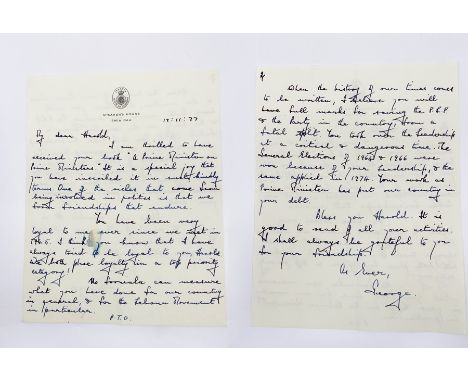 SPEAKER'S HOUSE
19:11:77
My dear Harold,
I am thrilled to have
received your book "A Prime Minister on
Prime Ministers". It is a special joy that
you have inscribed it in such kindly
terms. One of the riches that come from
being involved in politics is that we
form friendships that endure.
You have been very
loyal to me ever since we met in
I know that I have
always tried to be loyal to you, Harold.
We both place loyalty in a top priority
category!
No formula can measure
what you have done for our country
in general, & for the Labour Movement
in particular.
P.T.O.
When the history of our times comes
to be written, I believe you will
have full marks for saving the P.L.P
& the Party in the country, from a
fatal split. You took over the leadership
at a critical & dangerous time. The
General Elections of 1964 & 1966 were
won because of your leadership, & the
same applied in 1974. Your work as
Prime Minister has put our country in
your debt.
Bless you Harold. It is
good to read of all your activities.
I shall always be grateful to you
for your friendship.
As Ever,
George.